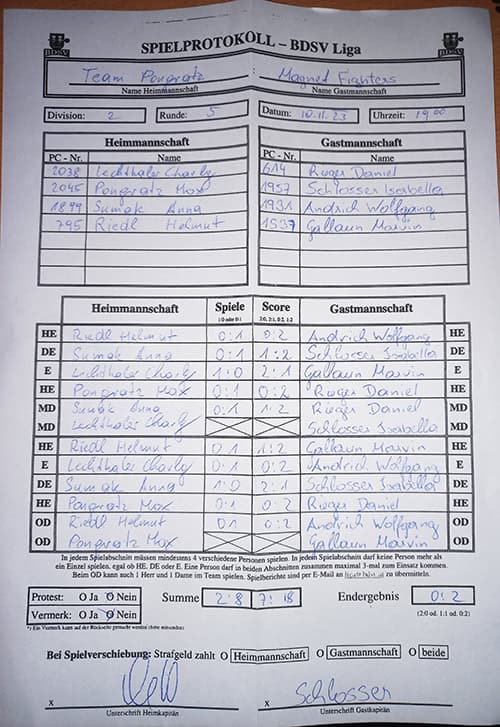 SPIELPROTOKOLL – BDSV Liga
BDSV BDSV
Team Pongratz Magned Fighters
Name Heimmannschaft Name Gastmannschaft
Division: 2 Runde: 5 Datum: 10.11.23 Uhrzeit: 19 00
Heimmannschaft Gastmannschaft
PC - Nr. Name PC - Nr. Name
2038 Lechthaler Charly 614 Rieger Daniel
2045 Pongratz Max 1957 Schlosser Isabella
1899 Sumak Anna 1931 Andrich Wolfgang
795 Riedl Helmut 1537 Gallaun Marvin
Heimmannschaft Spiele Score Gastmannschaft
1:0 oder 0:1 2:0, 2:1, 0:2, 1:2
HE Riedl Helmut 0:1 0:2 Andrich Wolfgang HE
DE Sumak Anna 0:1 1:2 Schlosser Isabella DE
E Lechthaler Charly 1:0 2:1 Gallaun Marvin E
HE Pongratz Max 0:1 0:2 Rieger Daniel HE
MD Sumak Anna 0:1 1:2 Rieger Daniel MD
MD Lechthaler Charly Schlosser Isabella MD
HE Riedl Helmut 0:1 1:2 Gallaun Marvin HE
E Lechthaler Charly 0:1 0:2 Andrich Wolfgang E
DE Sumak Anna 1:0 2:1 Schlosser Isabella DE
HE Pongratz Max 0:1 0:2 Rieger Daniel HE
OD Riedl Helmut 0:1 0:2 Andrich Wolfgang OD
OD Pongratz Max Gallaun Marvin OD
In jedem Spielabschnitt müssen mindestens 4 verschiedene Personen spielen. In jedem Spielabschnitt darf keine Person mehr als
ein Einzel spielen, egal ob HE, DE oder E. Eine Person darf in beiden Abschnitten zusammen maximal 3-mal zum Einsatz kommen.
Beim OD kann auch 1 Herr und 1 Dame im Team spielen. Spielberichte sind per E-Mail an zu übermitteln.
Protest: O Ja O Nein Summe 2:8 7:18 Endergebnis 0:2
Vermerk: O Ja O Nein (2:0 od. 1:1 od. 0:2)
*) Ein Vermerk kann auf der Rückseite gemacht werden
Bei Spielverschiebung: Strafgeld zahlt O Heimmannschaft O Gastmannschaft O beide
x x Schlosser
Unterschrift Heimkapitän Unterschrift Gastkapitän